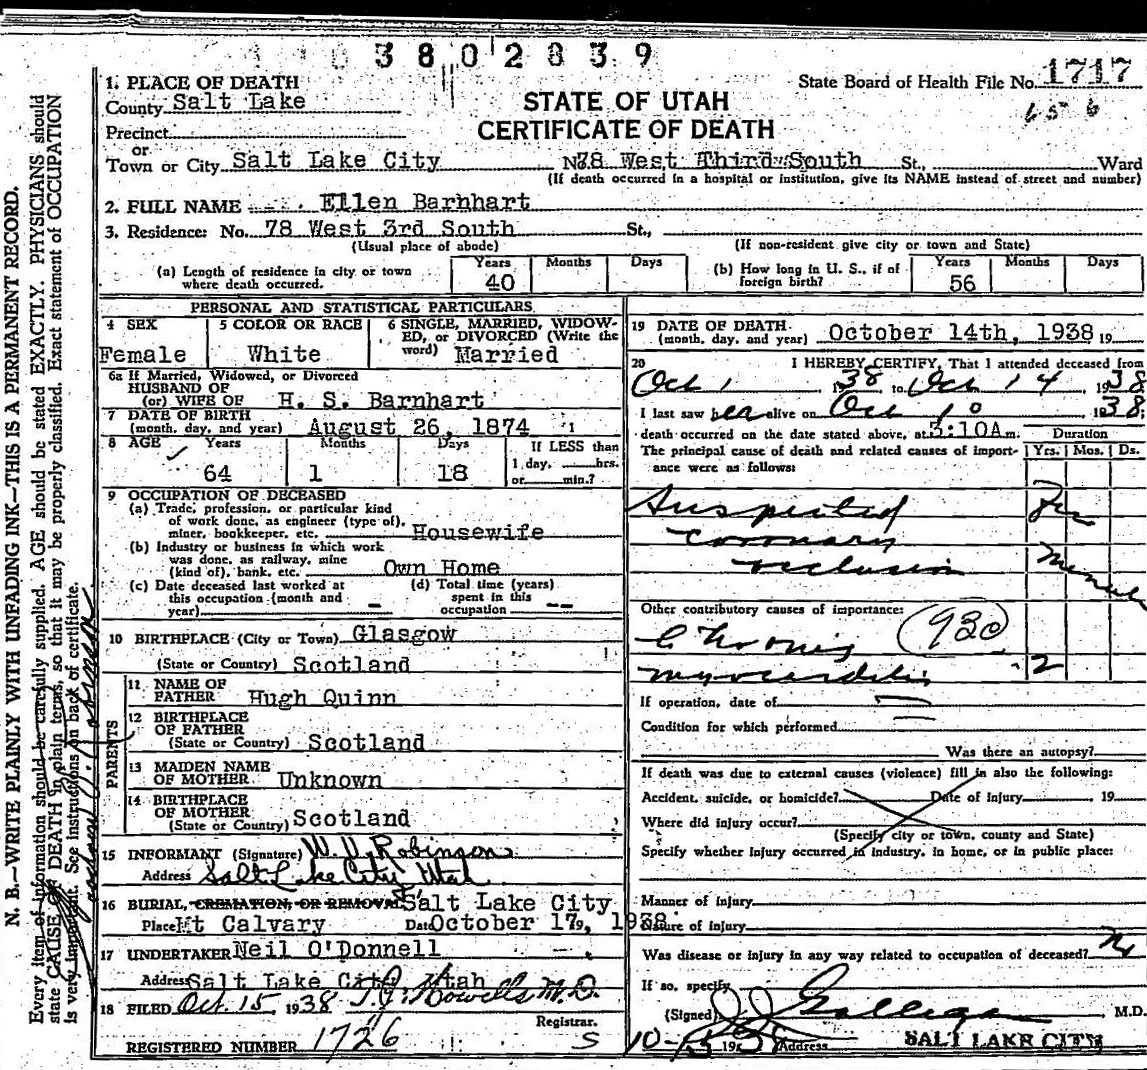 3802839
1. PLACE OF DEATH
State Board of Health File No. 1717
County Salt Lake
STATE OF UTAH
65 6
Precinct
CERTIFICATE OF DEATH
or
Town or City Salt Lake City No. 78 West Third South St., Ward
(If death occurred in a hospital or institution, give its NAME instead of street and number)
2. FULL NAME Ellen Barnhart
3. Residence: No. 78 West 3rd South St.,
(Usual place of abode) (If non-resident give city or town and State)
(a) Length of residence in city or town where death occurred. Years 40 Months Days
(b) How long in U. S., if of foreign birth? Years 56 Months Days
PERSONAL AND STATISTICAL PARTICULARS
4 SEX Female
5 COLOR OR RACE White
6 SINGLE, MARRIED, WIDOWED, OR DIVORCED (Write the word) Married
6a If Married, Widowed, or Divorced
HUSBAND OF
(or) WIFE OF H. S. Barnhart
7 DATE OF BIRTH
(month, day, and year) August 26, 1874
8 AGE Years 64 Months 1 Days 18
If LESS than
1 day, hrs.
or min.?
9 OCCUPATION OF DECEASED
(a) Trade, profession, or particular kind
of work done, as engineer (type of),
miner, bookkeeper, etc. Housewife
(b) Industry or business in which work
was done, as railway, mine
(kind of), bank, etc. Own Home
(c) Date deceased last worked at
this occupation (month and
year) –
(d) Total time (years)
spent in this
occupation --
10 BIRTHPLACE (City or Town) Glasgow
(State or Country) Scotland
PARENTS
11 NAME OF
FATHER Hugh Quinn
12 BIRTHPLACE
OF FATHER
(State or Country) Scotland
13 MAIDEN NAME
OF MOTHER Unknown
14 BIRTHPLACE
OF MOTHER
(State or Country) Scotland
15 INFORMANT (Signature) W. V. Robinson
Address Salt Lake City Utah
16 BURIAL, CREMATION, OR REMOVAL Salt Lake City
Place Mt Calvary Date October 17, 1938
17 UNDERTAKER Neil O'Donnell
Address Salt Lake City, Utah
18 FILED Oct. 15 1938 T. J. Howells M.D.
Registrar.
REGISTERED NUMBER 1726 S
19 DATE OF DEATH
(month, day, and year) October 14th, 1938 19
20 I HEREBY CERTIFY, That I attended deceased from
Oct 1 1938 to Oct 14 1938
I last saw her alive on Oct 10, 1938
death occurred on the date stated above, at 3:10A m.
The principal cause of death and related causes of importance were as follows:
Duration
Yrs. Mos. Ds.
Suspected Few
coronary
occlusion Minutes
Other contributory causes of importance:
93c
Chronic
myocarditis 2
If operation, date of
Condition for which performed
Was there an autopsy?
If death was due to external causes (violence) fill in also the following:
Accident, suicide, or homicide? Date of injury 19
Where did injury occur?
(Specify city or town, county and State)
Specify whether injury occurred in industry, in home, or in public place:
Manner of injury
Nature of injury
Was disease or injury in any way related to occupation of deceased? No
If so, specify
(Signed) J J Galligan M.D.
10-15 1938 Address SALT LAKE CITY
N. B.—WRITE PLAINLY WITH UNFADING INK—THIS IS A PERMANENT RECORD.
Every item of information should be carefully supplied. AGE should be stated EXACTLY. PHYSICIANS should
state CAUSE OF DEATH in plain terms, so that it may be properly classified. Exact statement of OCCUPATION
is very important. See instructions on back of certificate.